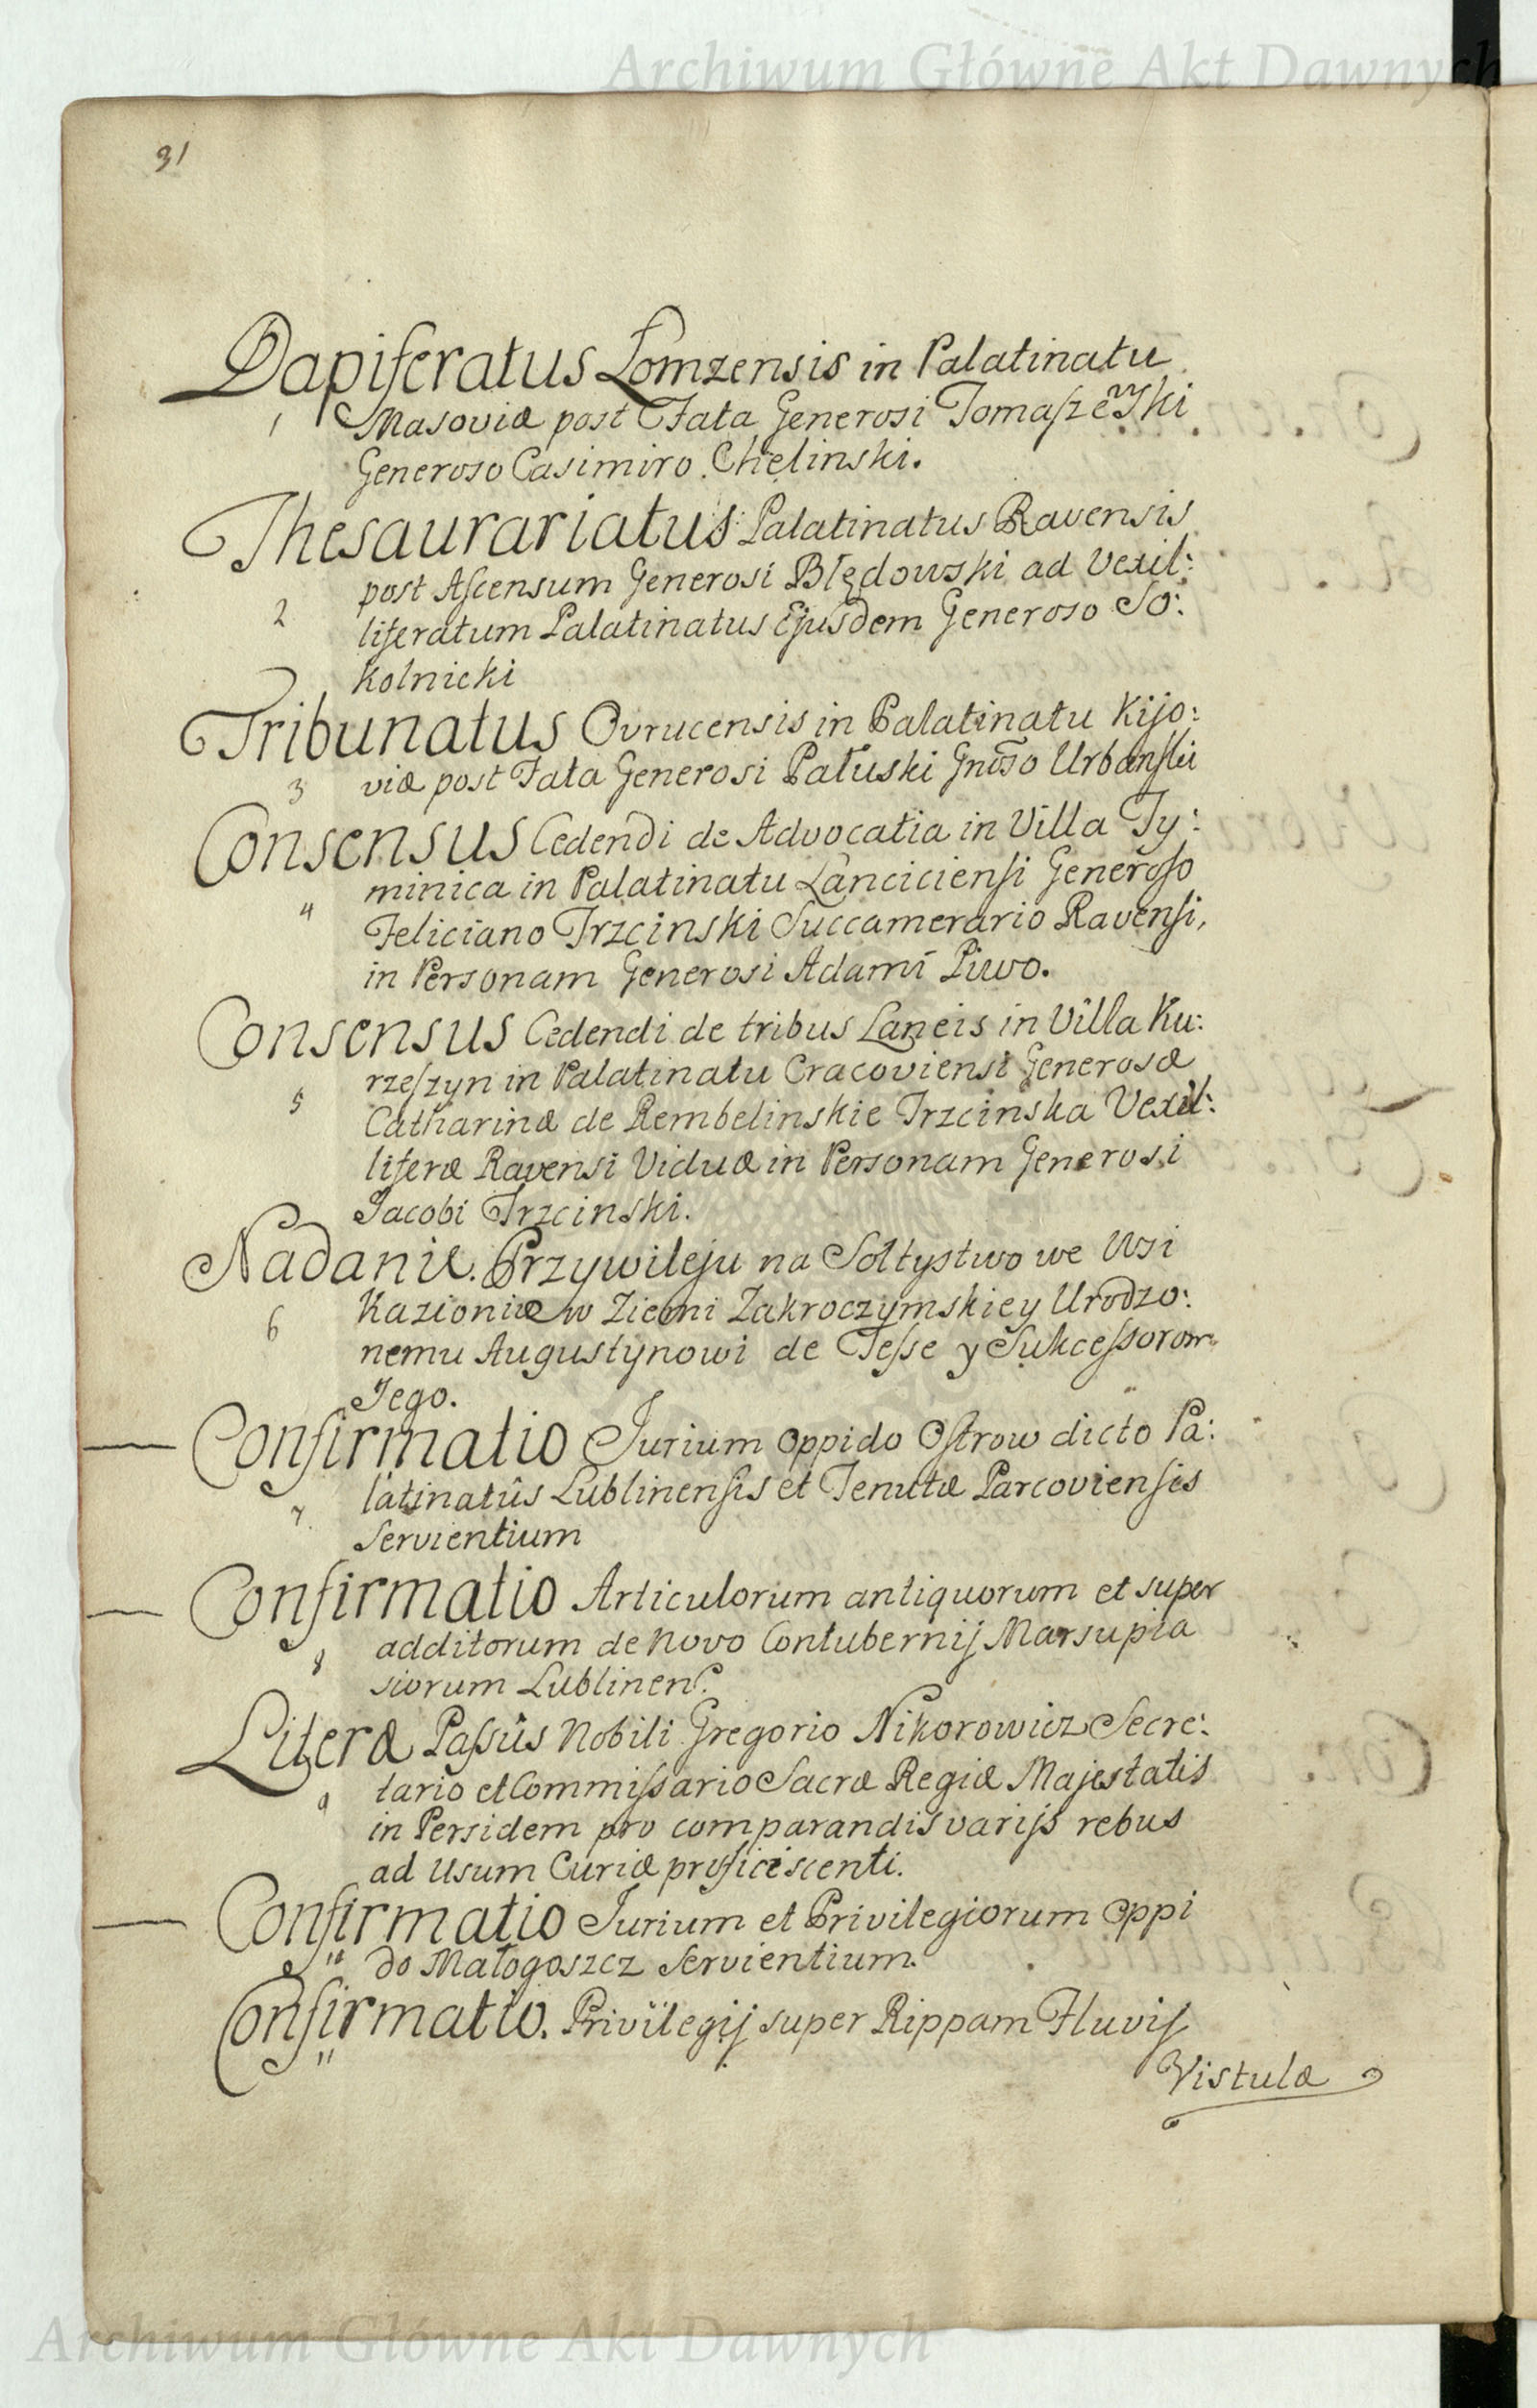 Archiwum Główne Akt Dawnych
31
Dapiferatus Łomzensis in Palatinatu
1 Masoviæ post Fata Generosi Tomaszewski
Generoso Casimiro Chelinski.
Thesaurariatus Palatinatus Ravensis
post Ascensum Generosi Błędowski ad Vexil:
2 liferatum Palatinatus Ejusdem Generoso So:
kolnicki
Tribunatus Ovrucensis in Palatinatu Kijo:
3 viæ post Fata Generosi Pałuski Gnoso Urbanski
Consensus Cedendi de Advocatia in Villa Ty:
minica in Palatinatu Lanciciensi Generoso
4 Feliciano Trzcinski Succamerario Ravensi,
in Personam Generosi Adami Piwo.
Consensus Cedendi de tribus Laneis in Villa Ku:
rzeszyn in Palatinatu Cracoviensi Generosæ
5 Catharinæ de Rembelinskie Trzcinska Vexil:
liferæ Ravensi Viduæ in Personam Generosi
Jacobi Trzcinski.
Nadanie. Przywileju na Sołtystwo we Wsi
6 Kazionie w Ziemi Zakroczymskiey Urodzo:
nemu Augustynowi de Tesse y Sukcessorom
Jego.
Confirmatio Jurium oppido Ostrow dicto Pa:
7. latinatûs Lublinensis et Tenutæ Parcoviensis
Servientium
Confirmatio Articulorum antiquorum et super
8 additorum de Novo Contubernij Marsupia
siorum Lublinen.
Literæ Passûs Nobili Gregorio Nikorowicz Secre:
9 tario et Commissario Sacræ Regiæ Majestatis
in Persidem pro comparandis varijs rebus
ad Usum Curiæ proficiscenti.
Confirmatio Jurium et Privilegiorum Oppi
10 do Małogoszcz Servientium.
Confirmatio. Privilegij super Rippam Fluvij
11
Vistulæ
Archiwum Główne Akt Dawnych